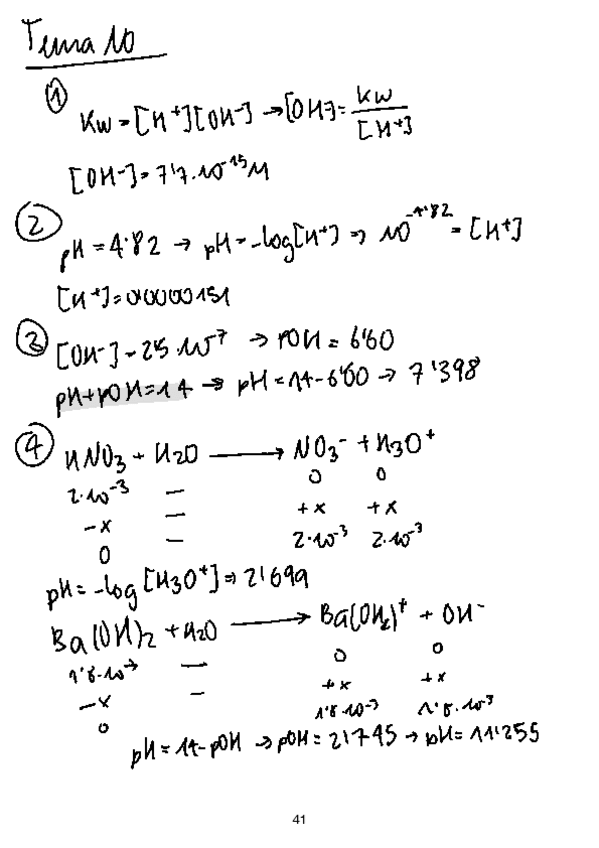 Tema 10
① Kw = [H⁺][OH⁻] → [OH⁻] = Kw / [H⁺]
[OH⁻] = 7'7·10⁻¹⁵ M
② pH = 4'82 → pH = -log[H⁺] ⇒ 10⁻⁴'⁸² = [H⁺]
[H⁺] = 0'0000151
③ [OH⁻] = 2'5·10⁻⁷ → pOH = 6'60
pH + pOH = 14 → pH = 14 - 6'60 → 7'398
④ HNO₃ + H₂O → NO₃⁻ + H₃O⁺
2·10⁻³ — 0 0
-x — +x +x
0 — 2·10⁻³ 2·10⁻³
pH = -log[H₃O⁺] ⇒ 2'699
Ba(OH)₂ + H₂O → Ba(OH₂)⁺ + OH⁻
1'8·10⁻³ — 0 0
-x — +x +x
0 1'8·10⁻³ 1'8·10⁻³
pH = 14 - pOH → pOH = 2'745 → pH = 11'255
41